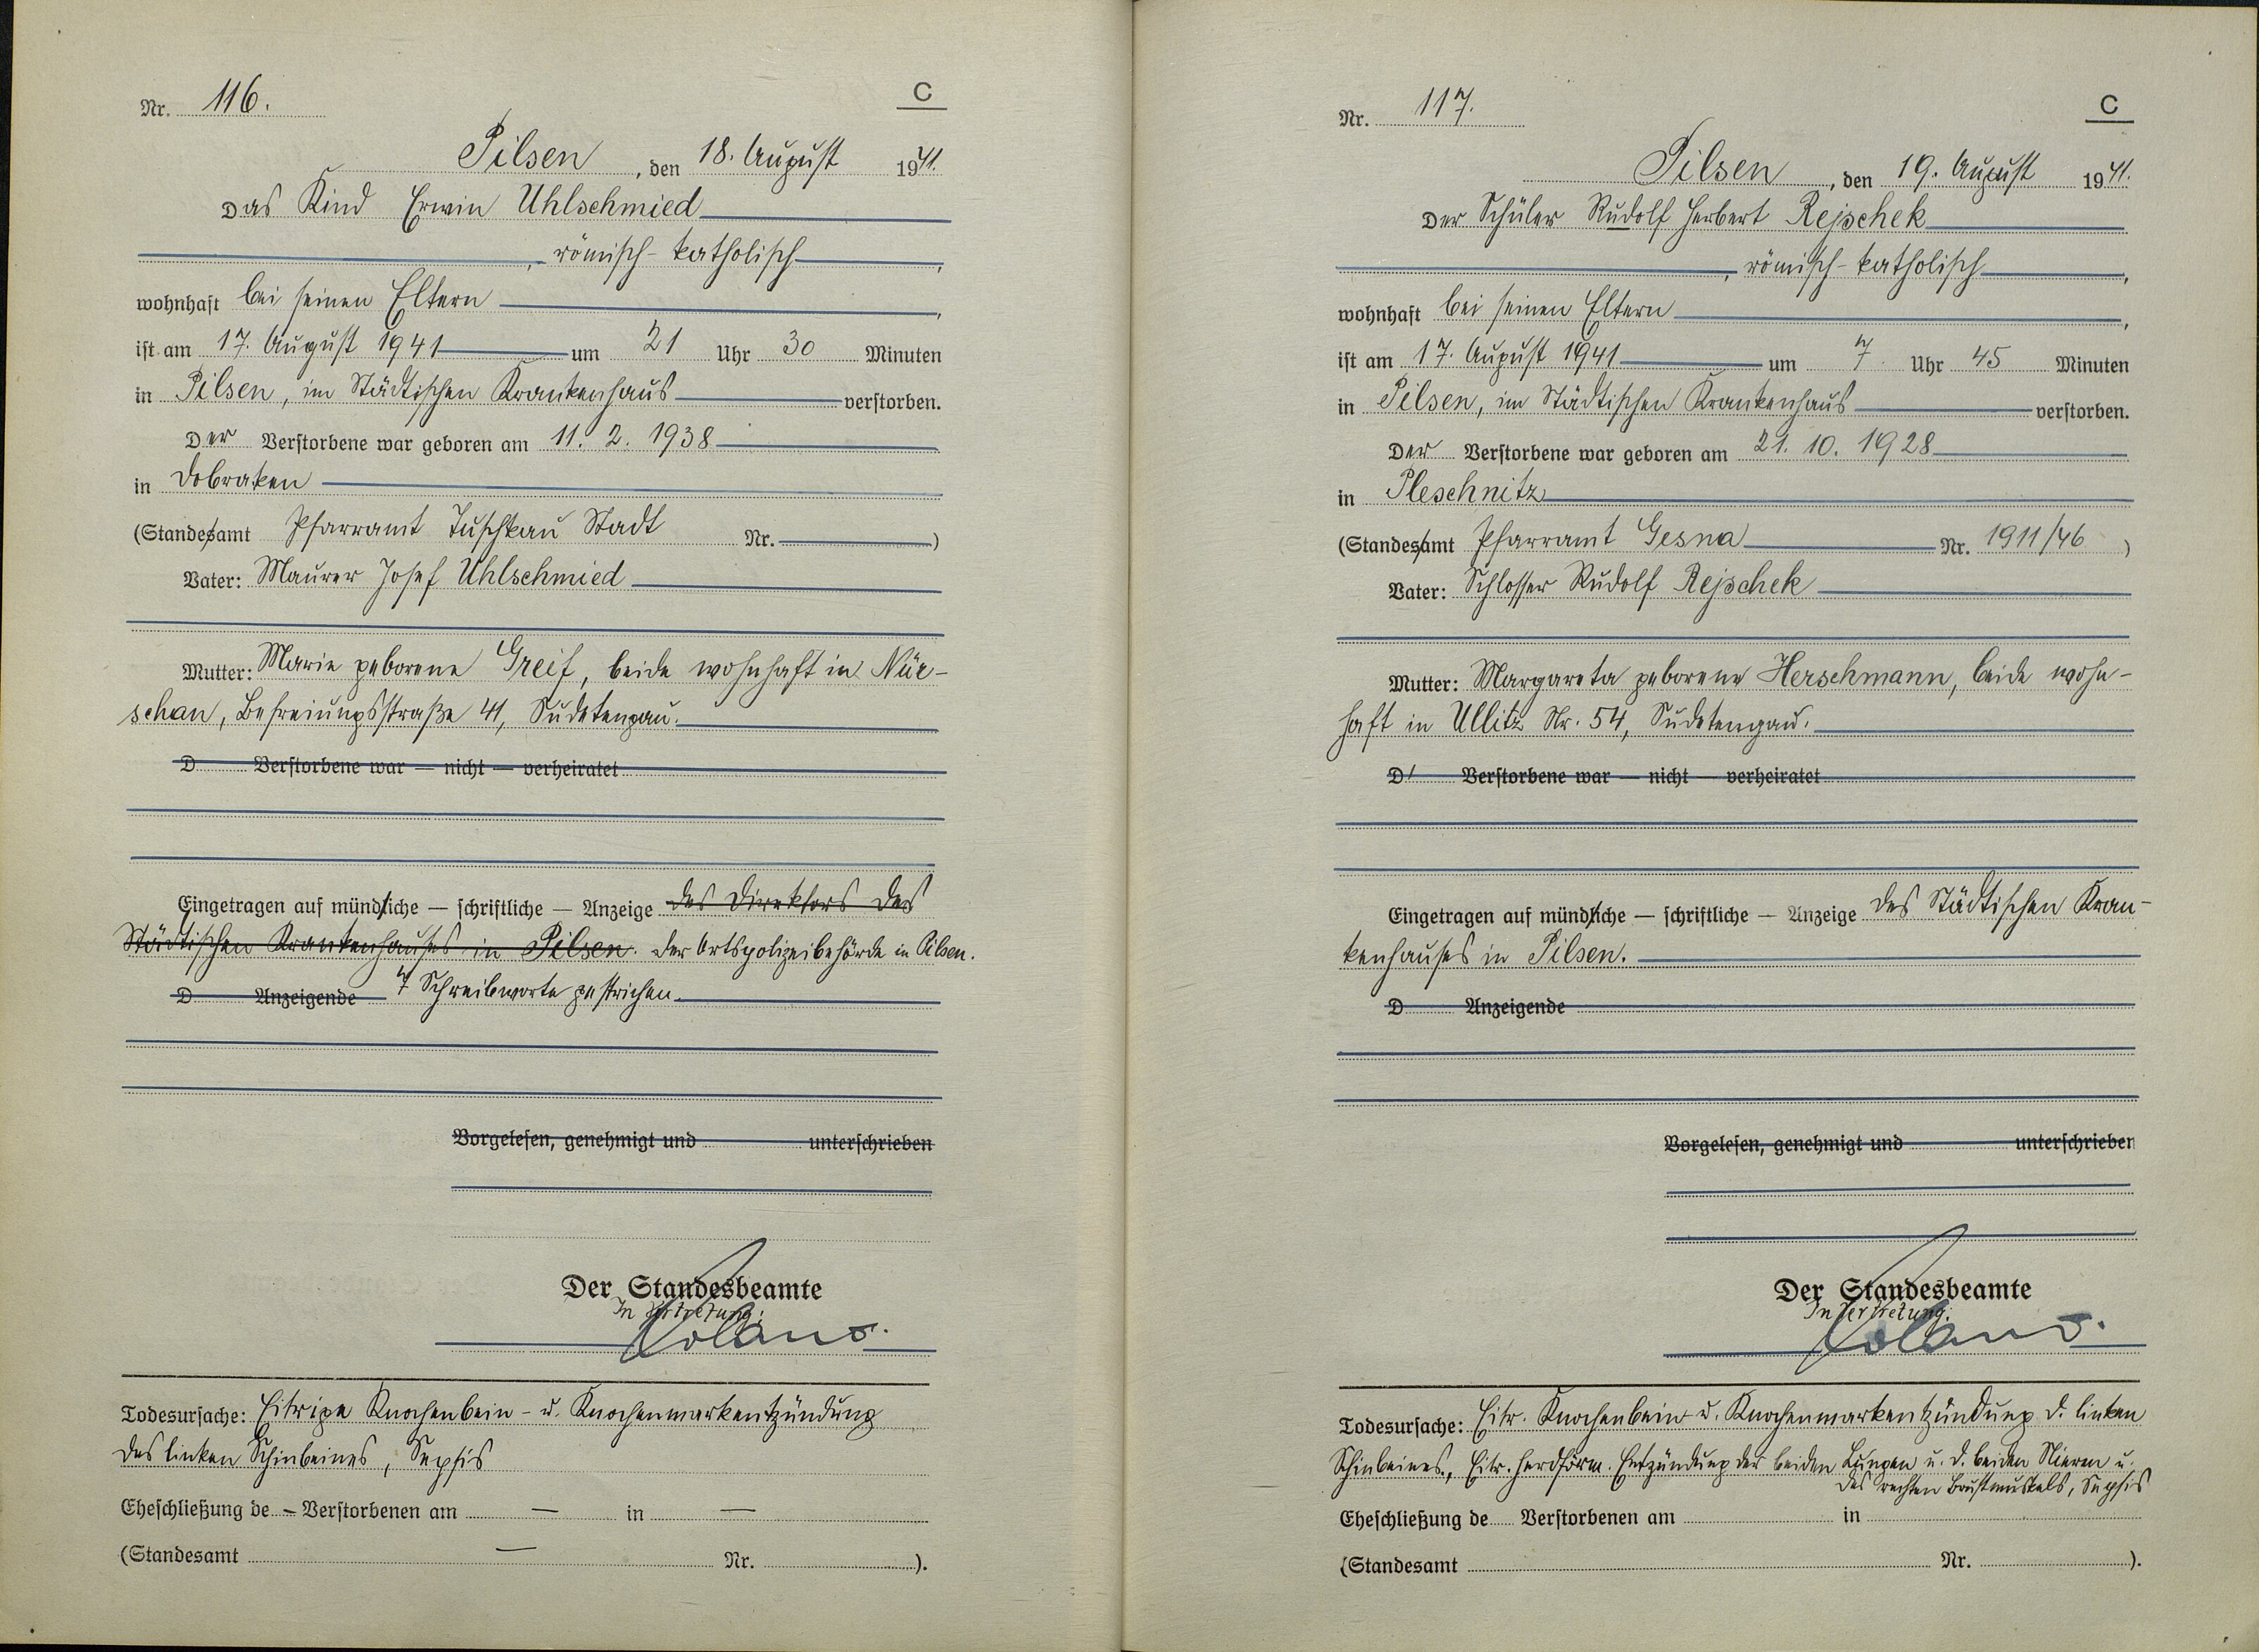 Nr. 116.
C
Pilsen, den 18. August 1941.
Das Kind Erwin Uhlschmied
, römisch-katholisch,
wohnhaft bei seinen Eltern,
ist am 17. August 1941 um 21 Uhr 30 Minuten
in Pilsen, im Städtischen Krankenhaus verstorben.
Der Verstorbene war geboren am 11. 2. 1938
in Dobraken
(Standesamt Pfarramt Tuschkau Stadt Nr. )
Vater: Maurer Josef Uhlschmied
Mutter: Marie geborene Greif, beide wohnhaft in Nür-
schan, Befreiungsstraße 41, Sudetengau.
D Verstorbene war — nicht — verheiratet
Eingetragen auf mündliche — schriftliche — Anzeige des Direktors des
Städtischen Krankenhauses in Pilsen. der Ortspolizeibehörde in Pilsen.
D Anzeigende 7 Schreibworte gestrichen.
Vorgelesen, genehmigt und unterschrieben
Der Standesbeamte
In Vertretung:
Todesursache: Eitrige Knochenbein- u. Knochenmarkentzündung
des linken Schinbeines, Sepsis
Eheschließung de - Verstorbenen am — in —
(Standesamt — Nr. ).
Nr. 117.
C
Pilsen, den 19. August 1941.
Der Schüler Rudolf Herbert Rejschek
, römisch-katholisch,
wohnhaft bei seinen Eltern,
ist am 17. August 1941 um 7 Uhr 45 Minuten
in Pilsen, im Städtischen Krankenhaus verstorben.
Der Verstorbene war geboren am 21. 10. 1928
in Pleschnitz
(Standesamt Pfarramt Gesna Nr. 1911/46 )
Vater: Schlosser Rudolf Rejschek
Mutter: Margareta geborene Herschmann, beide wohn-
haft in Ullitz Nr. 54, Sudetengau.
D Verstorbene war — nicht — verheiratet
Eingetragen auf mündliche — schriftliche — Anzeige des Städtischen Kran-
kenhauses in Pilsen.
D Anzeigende
Vorgelesen, genehmigt und unterschrieben
Der Standesbeamte
In Vertretung:
Todesursache: Eitr. Knochenbein- u. Knochenmarkentzündung d. linken
Schinbeines, Eitr. herdförm. Entzündung der beiden Lungen u. d. beiden Nieren u.
des rechten Brustmuskels, Sepsis
Eheschließung de Verstorbenen am in
(Standesamt Nr. ).